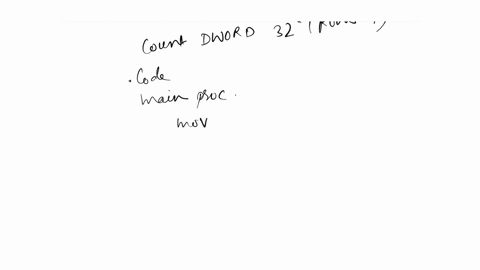 Count DWORD 32
.Code
main proc.
mov